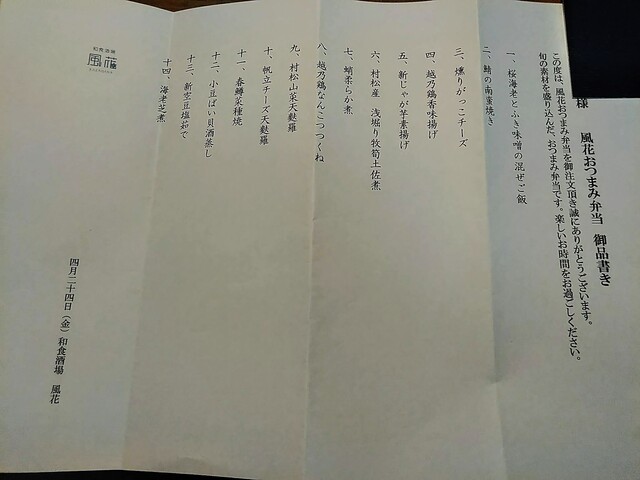 様
風花おつまみ弁当 御品書き
この度は、風花おつまみ弁当を御注文頂き誠にありがとうございます。
旬の素材を盛り込んだ、おつまみ弁当です。楽しいお時間をお過ごしください。
一、桜海老とふき味噌の混ぜご飯
二、鰆の南蛮焼き
三、燻りがっこチーズ
四、越乃鶏香味揚げ
五、新じゃが芋素揚げ
六、村松産 浅堀り牧筍土佐煮
七、蛸柔らか煮
八、越乃鶏なんこつつくね
九、村松山菜天麩羅
十、帆立チーズ天麩羅
十一、春鱒菜種焼
十二、小豆ばい貝酒蒸し
十三、新空豆塩茹で
十四、海老芝煮
四月二十四日(金) 和食酒場 風花
和食酒場
風花